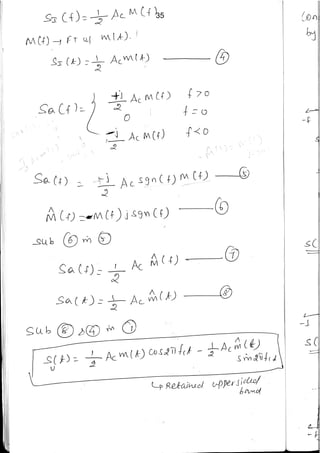 S_S (f) = 1/2 A_c M(f)
35
M(f) → FT of m(t).
S_S (t) = 1/2 A_c m(t) — ④
S_Q (f) = { +j/2 A_c M(f) f > 0
0 f = 0
-j/2 A_c M(f) f < 0
S_Q (f) = +j/2 A_c sgn(f) M(f) — ⑤
M̂(f) = -M(f) j sgn(f) — ⑥
sub ⑥ in ⑤
S_Q (f) = 1/2 A_c M̂(f) — ⑦
S_Q (t) = 1/2 A_c m̂(t) — ⑧
sub ⑧ & ④ in ①
S_U(t) = 1/2 A_c m(t) cos2πf_ct - 1/2 A_c m̂(t) sin2πf_ct
↳ Retained upper sided band